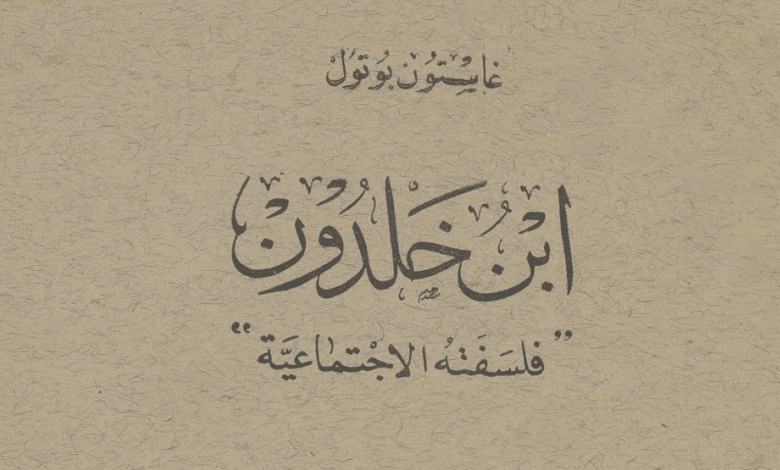 غاستون بوتول
ابن خلدون
"فلسفته الاجتماعية"